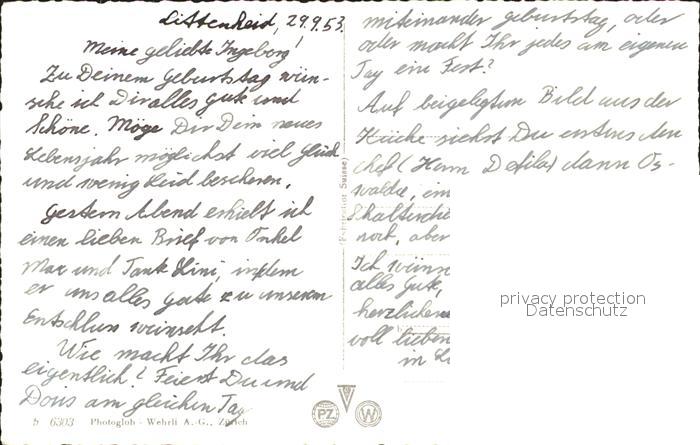 Littenheid, 29.9.53.
Meine geliebte Ingeborg!
Zu Deinem Geburtstag wün-
sche ich Dir alles Gute und
Schöne. Möge Dir Dein neues
Lebensjahr möglichst viel Glück
und wenig Leid bescheren.
Gestern Abend erhielt ich
einen lieben Brief von Onkel
Max und Tante Lini, indem
er uns alles Gute zu unserem
Entschluss wünscht.
Wie macht Ihr das
eigentlich? Feierst Du und
Doris am gleichen Tag
miteinander Geburtstag, oder
oder macht Ihr jedes am eigenen
Tag ein Fest?
Auf beigelegtem Bild aus der
Küche siehst Du erstens den
Chef (Herrn ) dann Os-
waldie, ein
noch, aber
Ich wünsc
alles Gute,
herzlichen
voll lieben
in L
(Fabrication Suisse)
b 6303 Photoglob - Wehrli A.-G., Zürich
PZ W
privacy protection
Datenschutz